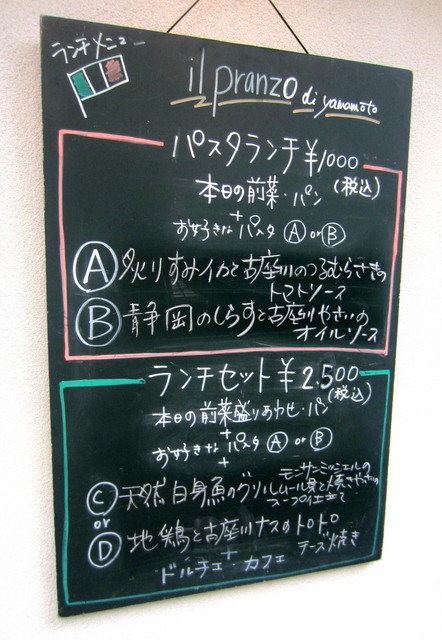 ランチメニュー
il pranzo
di yamamoto
パスタランチ ¥1000
(税込)
本日の前菜・パン
+
お好きなパスタ Ⓐ or Ⓑ
Ⓐ 炙りすみイカと古座川のつるむらさきの
トマトソース
Ⓑ 静岡のしらすと古座川やさいの
オイルソース
ランチセット ¥2.500
(税込)
本日の前菜盛りあわせ・パン
+
お好きなパスタ Ⓐ or Ⓑ
+
モンサンミッシェルの
Ⓒ 天然白身魚のグリル ムール貝と焼きやさいの
スープ仕立て
or
Ⓓ 地鶏と古座川ナスのトロトロ
チーズ焼き
+
ドルチェ・カフェ